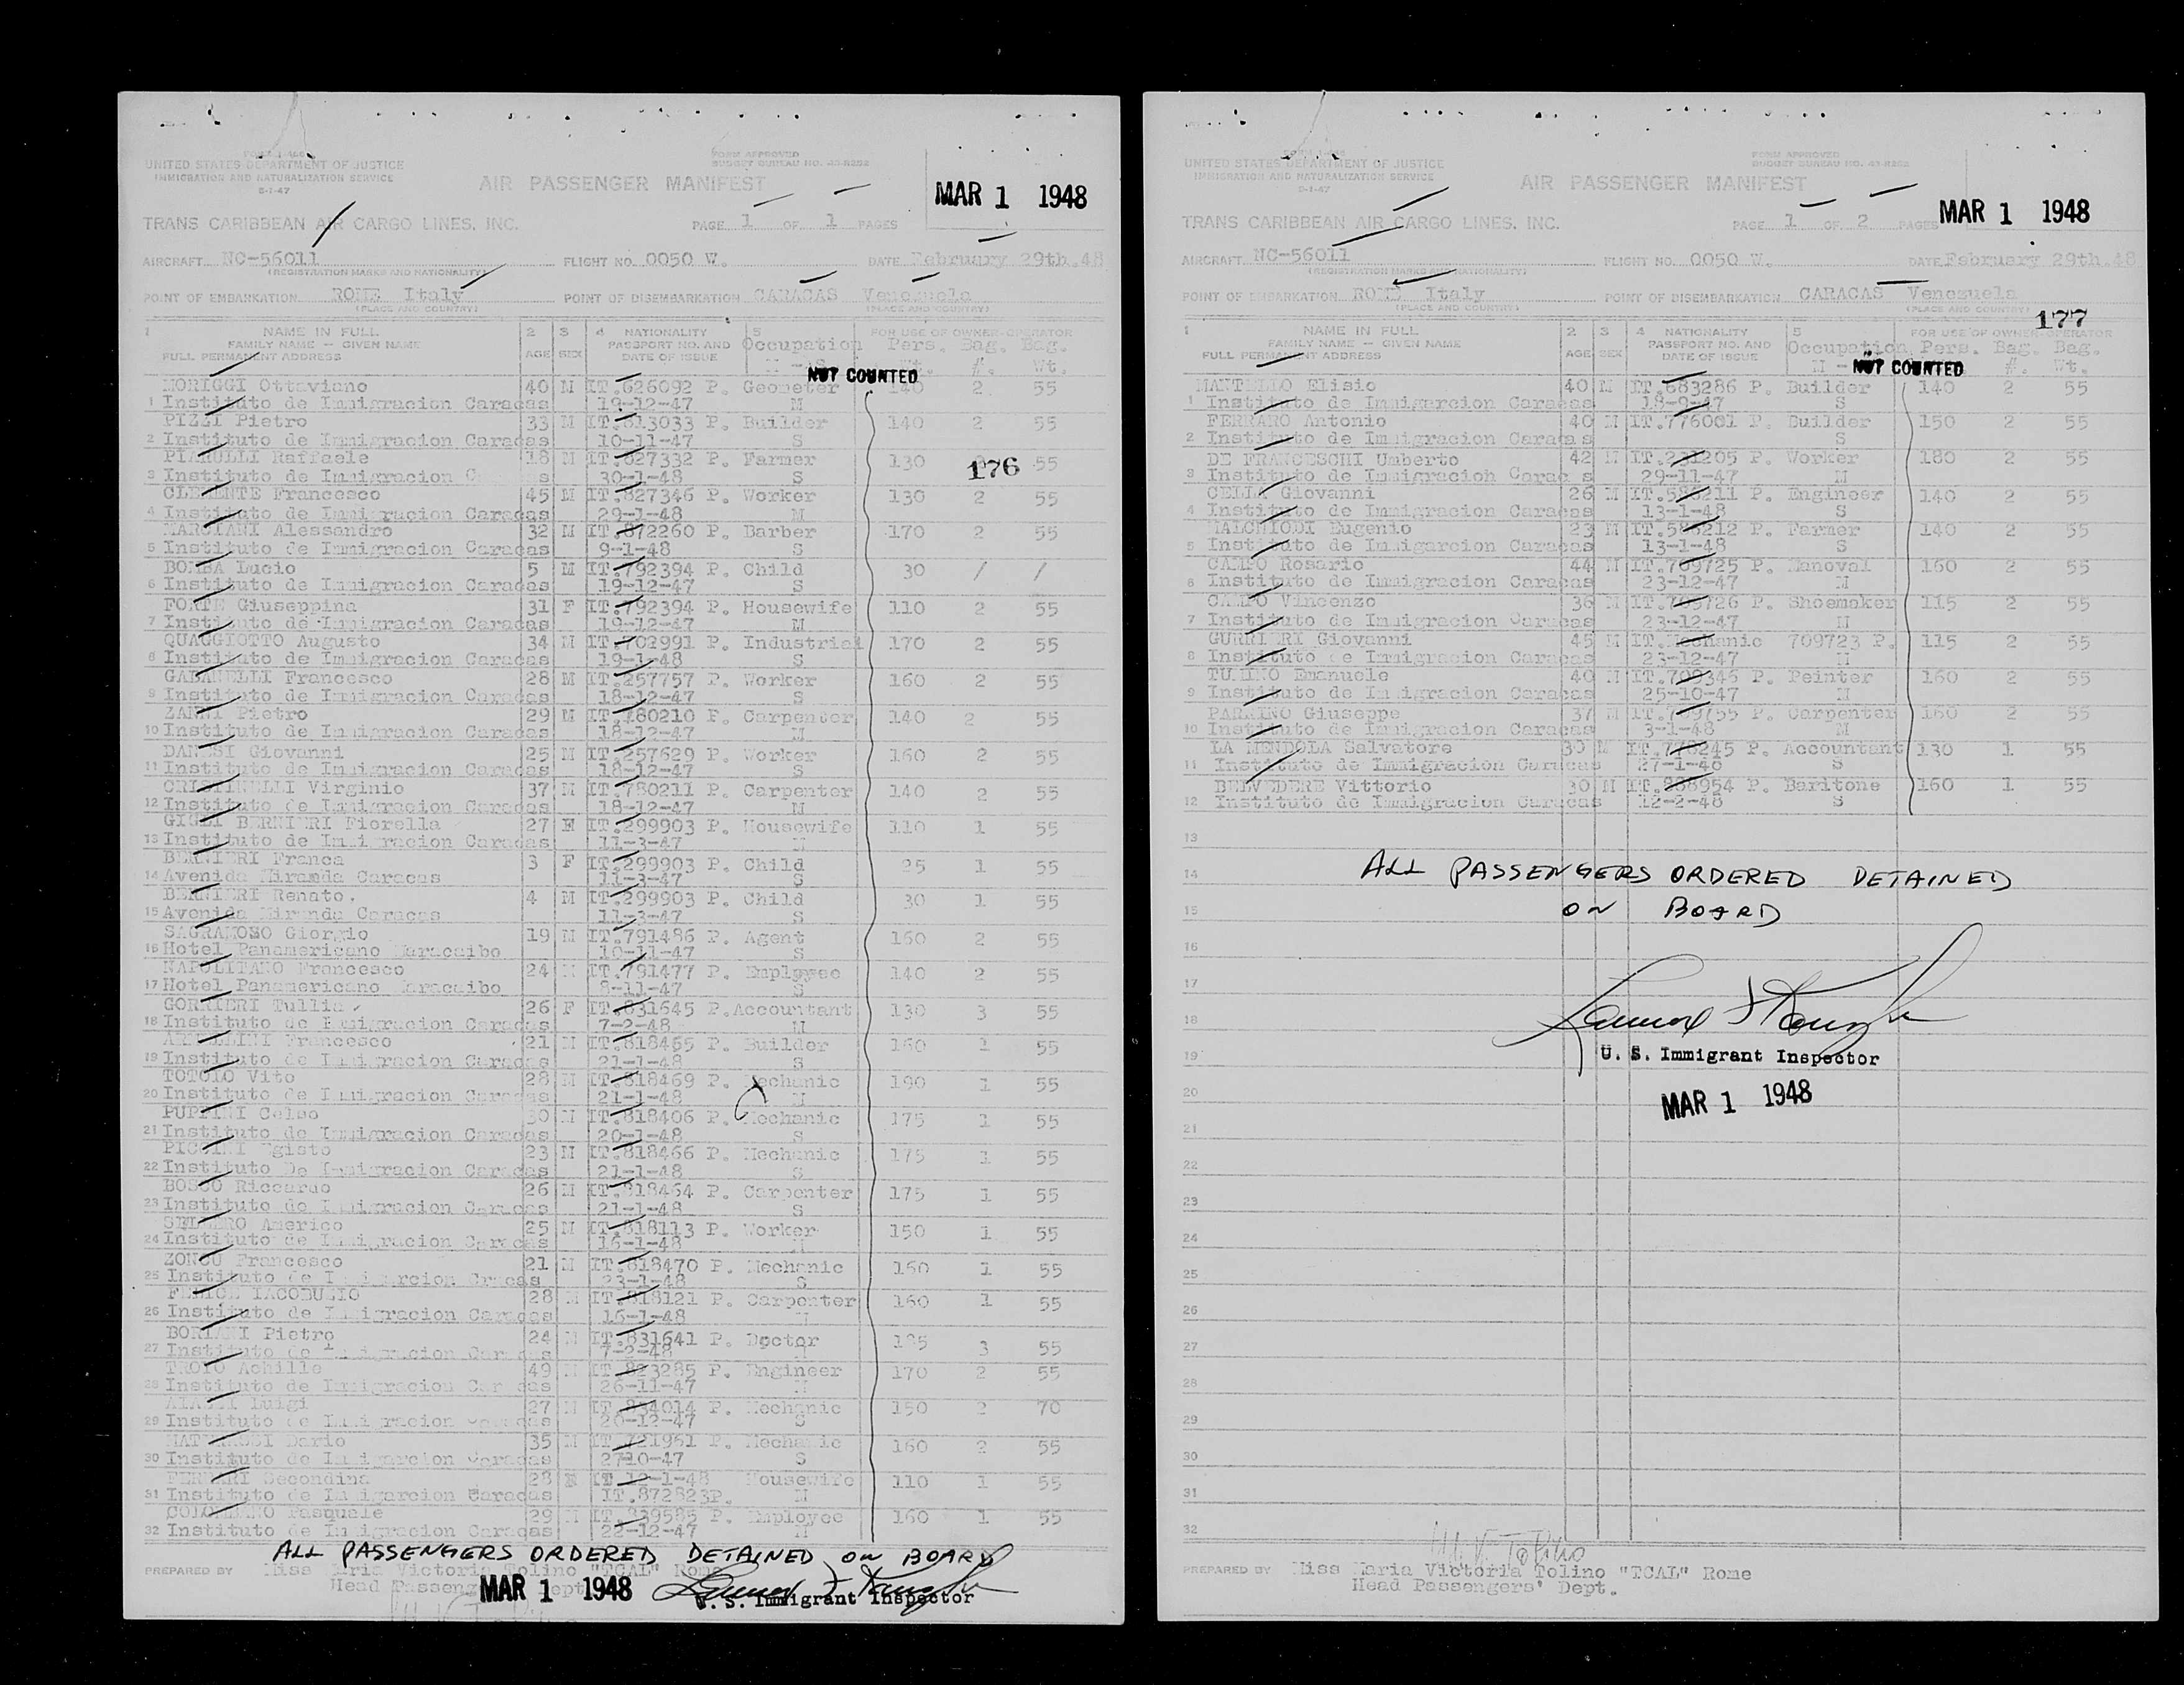 UNITED STATES DEPARTMENT OF JUSTICE
IMMIGRATION AND NATURALIZATION SERVICE
FORM APPROVED
BUDGET BUREAU NO. 43-R252
AIR PASSENGER MANIFEST
MAR 1 1948
TRANS CARIBBEAN AIR CARGO LINES, INC.
PAGE 1 OF 1 PAGES
AIRCRAFT NC-56011 FLIGHT NO. 0050 W. DATE February 29th.48
(REGISTRATION MARKS AND NATIONALITY)
POINT OF EMBARKATION ROME Italy POINT OF DISEMBARKATION CARACAS Venezuela
(PLACE AND COUNTRY) (PLACE AND COUNTRY)
1 NAME IN FULL 2 3 4 NATIONALITY 5 FOR USE OF OWNER-OPERATOR
FAMILY NAME — GIVEN NAME PASSPORT NO. AND Occupation Pers. Bag. Bag.
FULL PERMANENT ADDRESS AGE SEX DATE OF ISSUE Wt. #. Wt.
NOT COUNTED
MORIGGI Ottaviano 40 M IT.626092 P. Geometer 140 2 55
1 Instituto de Immigracion Caracas 19-12-47 M
PIZZI Pietro 33 M IT.813033 P. Builder 140 2 55
2 Instituto de Immigracion Caracas 10-11-47 S
PIARULLI Raffaele 18 M IT.827332 P. Farmer 130 176 55
3 Instituto de Immigracion 30-1-48 S
CLEMENTE Francesco 45 M IT.827346 P. Worker 130 2 55
4 Instituto de Immigracion Caracas 29-1-48 M
MARCIANI Alessandro 32 M IT.872260 P. Barber 170 2 55
5 Instituto de Immigracion Caracas 9-1-48 S
BOMBA Lucio 5 M IT.792394 P. Child 30 / /
6 Instituto de Immigracion Caracas 19-12-47 S
FORTE Giuseppina 31 F IT.792394 P. Housewife 110 2 55
7 Instituto de Immigracion Caracas 19-12-47 M
QUAGGIOTTO Augusto 34 M IT.702991 P. Industrial 170 2 55
8 Instituto de Immigracion Caracas 19-1-48 S
GABANELLI Francesco 28 M IT.257757 P. Worker 160 2 55
9 Instituto de Immigracion Caracas 18-12-47 S
ZANNI Pietro 29 M IT.180210 P. Carpenter 140 2 55
10 Instituto de Immigracion Caracas 18-12-47 M
DANESI Giovanni 25 M IT.257629 P. Worker 160 2 55
11 Instituto de Immigracion Caracas 18-12-47 S
CRISTINELLI Virginio 37 M IT.780211 P. Carpenter 140 2 55
12 Instituto de Immigracion Caracas 18-12-47 M
GIGLI BERNIERI Fiorella 27 F IT.299903 P. Housewife 110 1 55
13 Instituto de Immigracion Caracas 11-3-47 M
BERNIERI Franca 3 F IT.299903 P. Child 25 1 55
14 Avenida Miranda Caracas 11-3-47 S
BERNIERI Renato. 4 M IT.299903 P. Child 30 1 55
15 Avenida Miranda Caracas 11-3-47 S
SAGRAMOSO Giorgio 19 M IT.791486 P. Agent 160 2 55
16 Hotel Panamericano Maracaibo 10-11-47 S
NAPOLITANO Francesco 24 M IT.791477 P. Employee 140 2 55
17 Hotel Panamericano Maracaibo 8-11-47 S
GORRIERI Tullia 26 F IT.831645 P. Accountant 130 3 55
18 Instituto de Immigracion Caracas 7-2-48 M
Francesco 21 M IT.818465 P. Builder 160 1 55
19 Instituto de Immigracion Caracas 21-1-48 S
TOTOLO Vito 28 M IT.818469 P. Mechanic 190 1 55
20 Instituto de Immigracion Caracas 21-1-48 M
PUPPINI Celso 30 M IT.818406 P. Mechanic 175 1 55
21 Instituto de Immigracion Caracas 20-1-48 S
PICCINI Egisto 23 M IT.818466 P. Mechanic 175 1 55
22 Instituto De Immigracion Caracas 21-1-48 S
BOSCO Riccardo 26 M IT.818464 P. Carpenter 175 1 55
23 Instituto de Immigracion Caracas 21-1-48 S
Americo 25 M IT.818113 P. Worker 150 1 55
24 Instituto de Immigracion Caracas 16-1-48 M
Francesco 21 M IT.818470 P. Mechanic 160 1 55
25 Instituto de 23-1-48 S
FELICE IACOBUZIO 28 M IT.818121 P. Carpenter 160 1 55
26 Instituto de Immigracion Caracas 16-1-48 M
BORIANI Pietro 24 M IT.831641 P. Doctor 3 55
27 Instituto de Immigracion 7-2-48 M
TROIO Achille 49 M IT.823285 P. Engineer 170 2 55
28 Instituto de Immigracion 26-11-47 M
Luigi 27 M IT.834014 P. Mechanic 150 2 70
29 Instituto de Immigracion 20-12-47 S
Dario 35 M IT.721961 P. Mechanic 160 2 55
30 Instituto de 2710-47 S
FERRARI Secondina 28 F IT.12-1-48 Housewife 110 1 55
31 Instituto de Immigarcion Caracas IT.872823P. M
Pasquale 29 M IT.839585 P. Employee 160 1 55
32 Instituto de Immigracion Caracas 22-12-47 M
ALL PASSENGERS ORDERED DETAINED ON BOARD
PREPARED BY Miss Maria Victoria Tolino "TCAL" Rome
Head Passengers' Dept.
MAR 1 1948
U. S. Immigrant Inspector
UNITED STATES DEPARTMENT OF JUSTICE
IMMIGRATION AND NATURALIZATION SERVICE
FORM APPROVED
BUDGET BUREAU NO. 43-R252
AIR PASSENGER MANIFEST
MAR 1 1948
TRANS CARIBBEAN AIR CARGO LINES, INC.
PAGE 1 OF 2 PAGES
AIRCRAFT NC-56011 FLIGHT NO. 0050 W. DATE February 29th.48
(REGISTRATION MARKS AND NATIONALITY)
POINT OF EMBARKATION ROME Italy POINT OF DISEMBARKATION CARACAS Venezuela
(PLACE AND COUNTRY) (PLACE AND COUNTRY)
177
1 NAME IN FULL 2 3 4 NATIONALITY 5 FOR USE OF OWNER-OPERATOR
FAMILY NAME — GIVEN NAME PASSPORT NO. AND Occupation Pers. Bag. Bag.
FULL PERMANENT ADDRESS AGE SEX DATE OF ISSUE #. Wt.
NOT COUNTED
MARTELLO Elisio 40 M IT.683286 P. Builder 140 2 55
1 Instituto de Immigarcion Caracas 18-9-47 S
FERRARO Antonio 40 M IT.776001 P. Builder 150 2 55
2 Instituto de Immigracion Caracas S
DE FRANCESCHI Umberto 42 M IT.231205 P. Worker 180 2 55
3 Instituto de Immigracion Caracas 29-11-47 M
CELLA Giovanni 26 M IT.586211 P. Engineer 140 2 55
4 Instituto de Immigracion Caracas 13-1-48 S
MALCHIODI Eugenio 23 M IT.586212 P. Farmer 140 2 55
5 Instituto de Immigarcion Caracas 13-1-48 S
CAMPO Rosario 44 M IT.709725 P. Manoval 160 2 55
6 Instituto de Immigracion Caracas 23-12-47 M
CAMPO Vincenzo 36 M IT.709726 P. Shoemaker 115 2 55
7 Instituto de Immigracion Caracas 23-12-47 M
GURRIERI Giovanni 45 M IT.Mechanic 709723 P. 115 2 55
8 Instituto de Immigracion Caracas 23-12-47 M
TUMINO Emanuele 40 M IT.709346 P. Peinter 160 2 55
9 Instituto de Immigracion Caracas 25-10-47 M
PARRINO Giuseppe 37 M IT.709755 P. Carpenter 160 2 55
10 Instituto de Immigracion Caracas 3-1-48 M
LA MENDOLA Salvatore 30 M IT.778245 P. Accountant 130 1 55
11 Instituto de Immigracion Caracas 27-1-48 S
BELVEDERE Vittorio 30 M IT.886954 P. Baritone 160 1 55
12 Instituto de Immigracion Caracas 12-2-48 S
13
14 ALL PASSENGERS ORDERED DETAINED
15 ON BOARD
16
17
18
19 U. S. Immigrant Inspector
20 MAR 1 1948
21
22
23
24
25
26
27
28
29
30
31
32
M. V. Tolino
PREPARED BY Miss Maria Victoria Tolino "TCAL" Rome
Head Passengers' Dept.